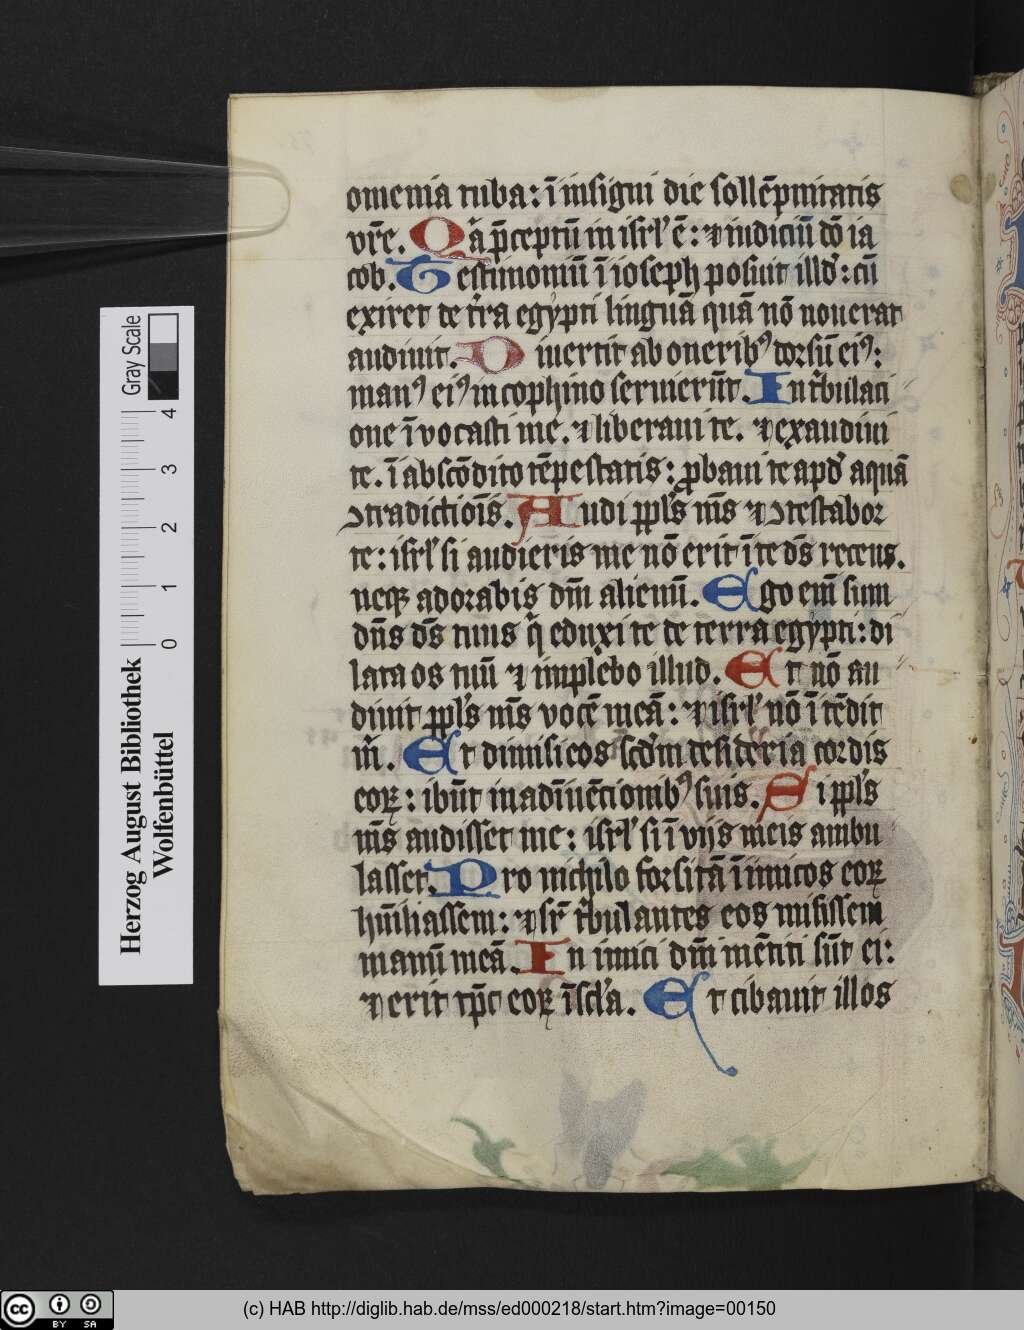 omenia tuba: ī insigni die sollēpnitatis
vr̄e. Qͣa p̄ceptū in isrl' ē: ⁊ iudiciū dō ia
cob. Testimoniū ī ioseph posuit illd': cū
exiret de t̄ra egypti linguā quā nō nouerat
audiuit. Diuertit ab onerib⁹ dorsū ei⁹:
man⁹ ei⁹ in cophino seruierūt. In t'bulati
one īuocasti me. ⁊ liberaui te. ⁊ exaudiui
te. ī abscōdito tēpestatis: ꝓbaui te apd' aquā
ↄtradictiōis. Audi ppl's m̄s ⁊ ↄtestabor
te: isrl' si audieris me nō erit ī te ds̄ recens.
neqꝫ adorabis dm̄ alienū. Ego em̄ sum
dn̄s ds̄ tuus q̄ eduxi te de terra egypti: di
lata os tuū ⁊ implebo illud. Et nō au
diuit ppl's m̄s vocē meā: ⁊ isrl' nō ītēdit
m̄. Et dimisi eos scd'm desideria cordis
eoꝝ: ibūt in adīuētiōnib⁹ suis. Si ppl's
m̄s audisset me: isrl' si ī vijs meis ambu
lasset. Pro nichilo forsitā īimicos eoꝝ
hūiliassem: ⁊ sr̄ t'bulantes eos misissem
manū meā. Inimici dm̄ mētiti sūt ei:
⁊ erit tp̄c eoꝝ ī scl'a. Et cibauit illos
Herzog August Bibliothek
Wolfenbüttel
Gray Scale
0 1 2 3 4
cc BY SA
(c) HAB http://diglib.hab.de/mss/ed000218/start.htm?image=00150